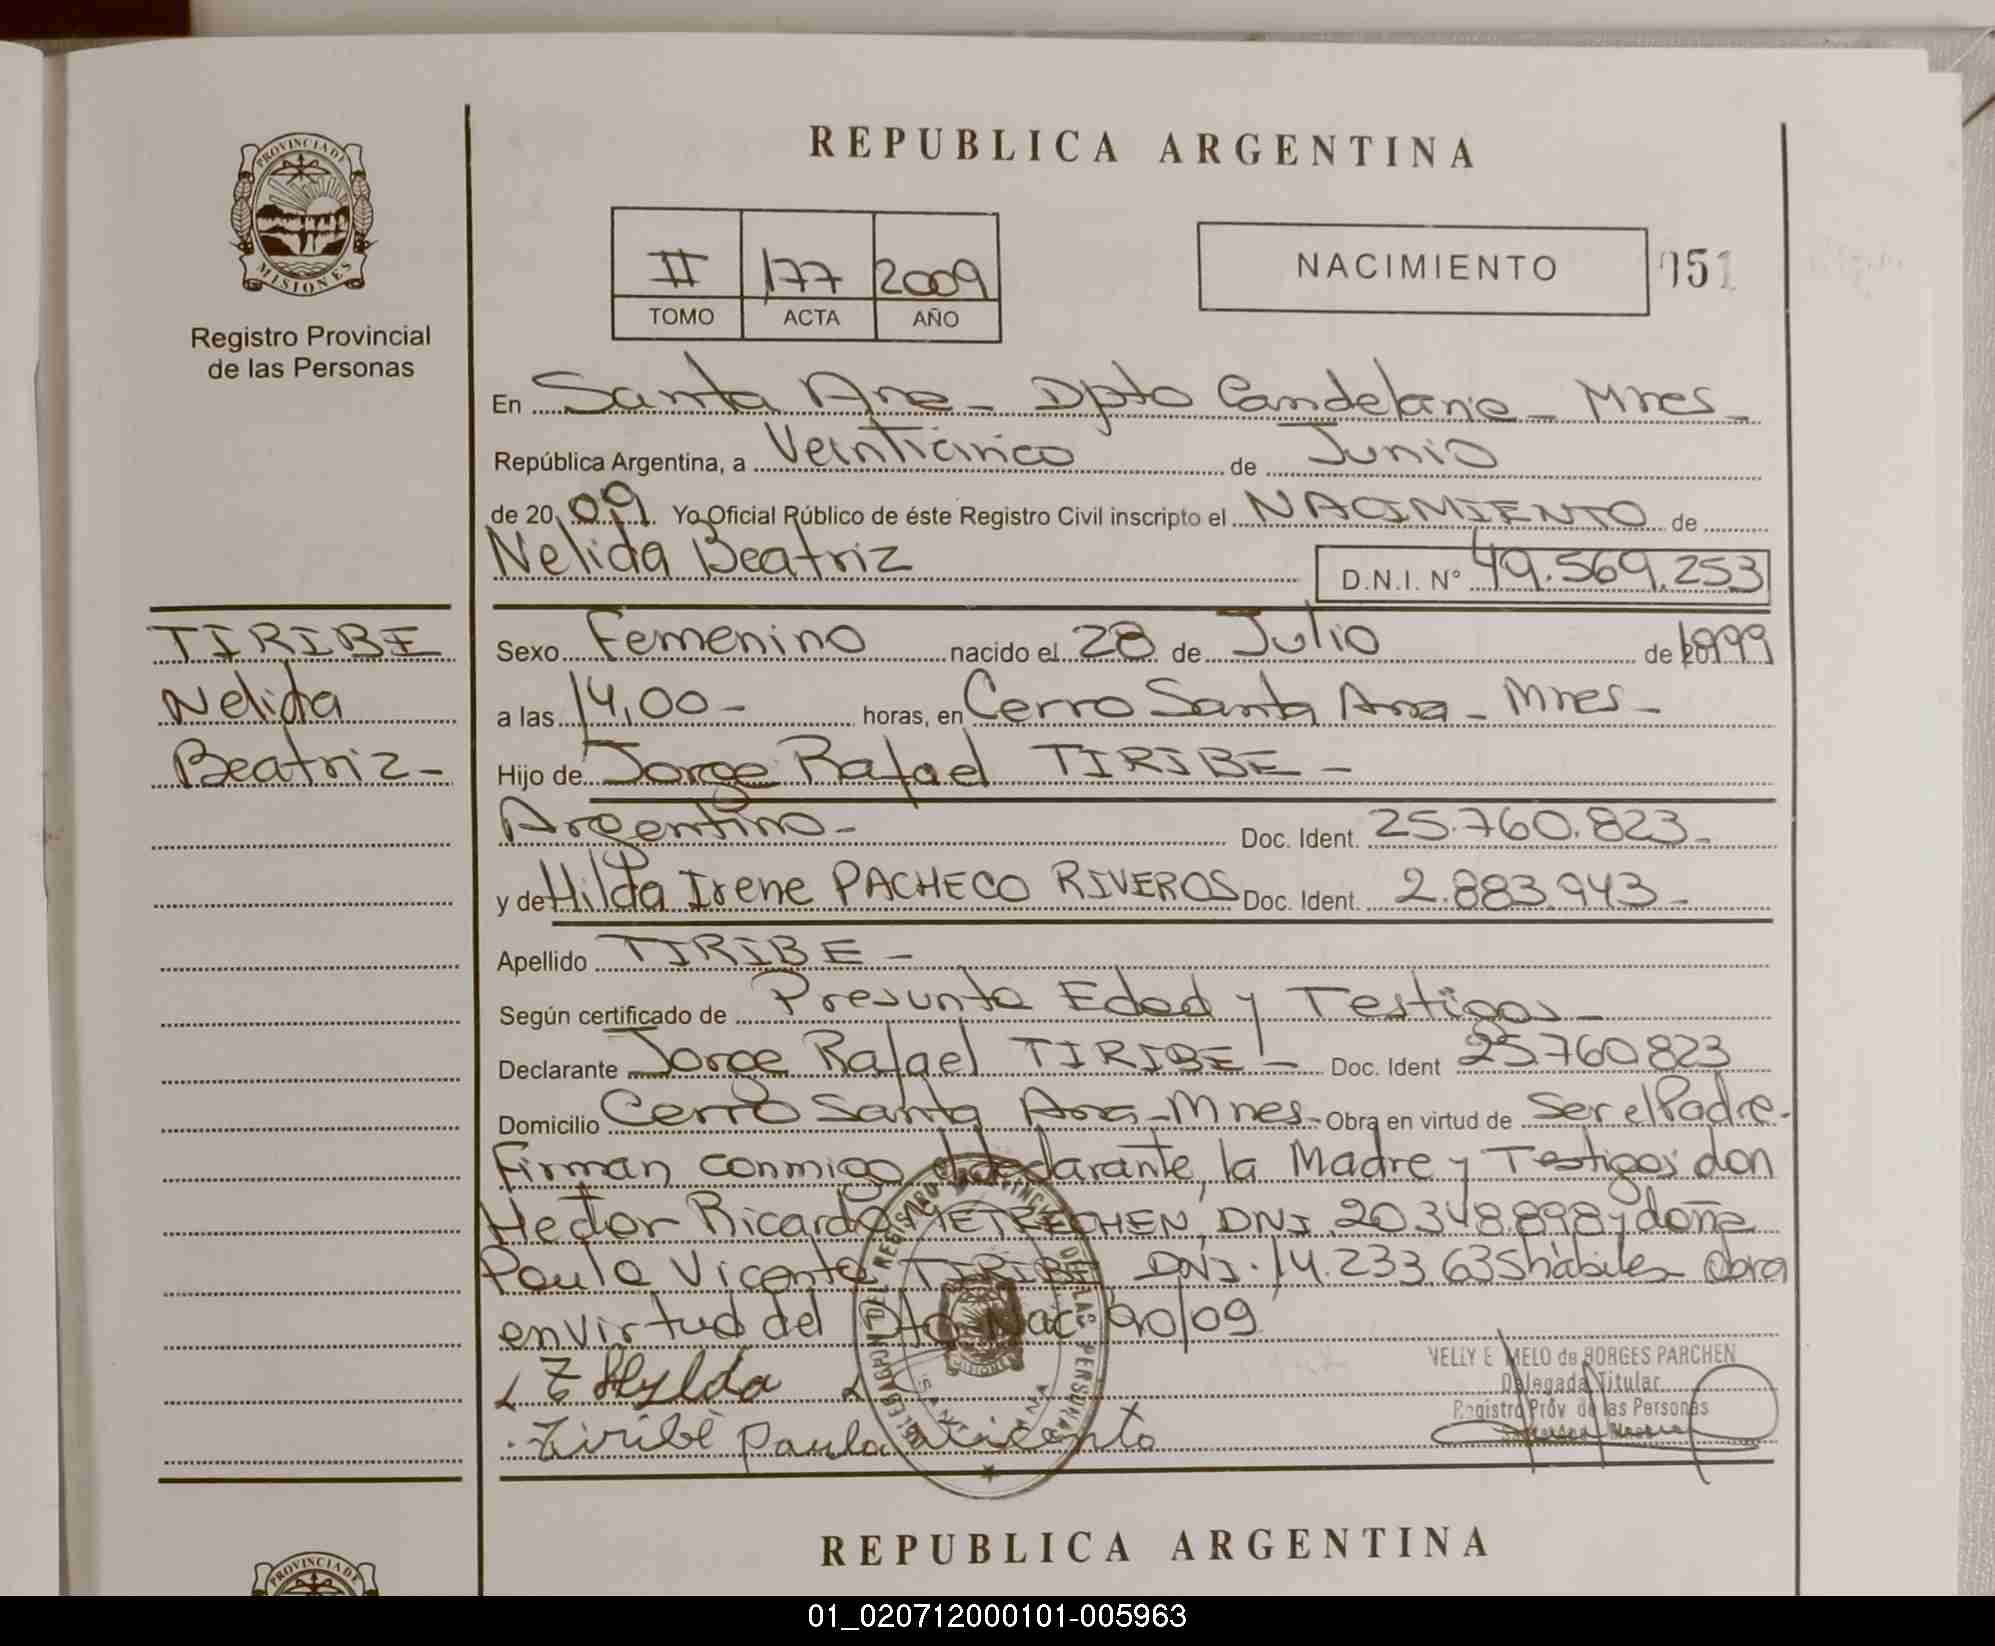 REPUBLICA ARGENTINA
PROVINCIA DE
MISIONES
Registro Provincial
de las Personas
II 177 2009
TOMO ACTA AÑO
NACIMIENTO
051
En Santa Ana - Dpto Candelaria - Mnes -
República Argentina, a Veinticinco de Junio
de 2009. Yo Oficial Público de éste Registro Civil inscripto el NACIMIENTO de
Nelida Beatriz D.N.I. N° 49.569.253
TIRIBE
Nelida
Beatriz -
Sexo Femenino nacido el 28 de Julio de 1999
a las 14,00 - horas, en Cerro Santa Ana - Mnes -
Hijo de Jorge Rafael TIRIBE -
Argentino - Doc. Ident. 25.760.823 -
y de Hilda Irene PACHECO RIVEROS Doc. Ident. 2.883.943 -
Apellido TIRIBE -
Según certificado de Presunta Edad y Testigos -
Declarante Jorge Rafael TIRIBE - Doc. Ident 25.760823
Domicilio Cerro Santa Ana - Mnes - Obra en virtud de Ser el Padre -
Firman conmigo el declarante, la Madre y Testigos don
Hector Ricardo METRECHEN, DNI. 20.348.898 y doña
Paula Vicenta TIRIBE DNI. 14.233.635 hábiles Obra
en virtud del Dto Nac 90/09
Hylda
Tiribé Paula Vicenta
NELLY E MELO de BORGES PARCHEN
Delegada Titular
Registro Prov de las Personas
REPUBLICA ARGENTINA
PROVINCIA DE
01_020712000101-005963